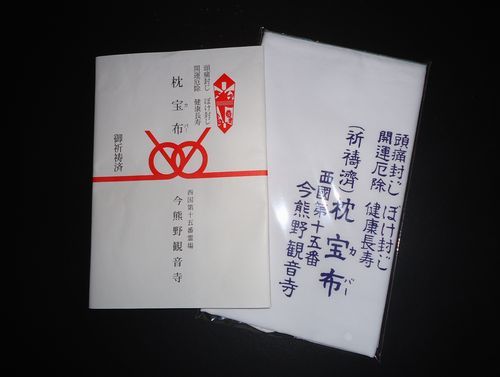 頭痛封じ ぼけ封じ
開運厄除 健康長寿
枕宝布
カバー
御祈祷済
西国第十五番霊場
今熊野観音寺
頭痛封じ ぼけ封じ
開運厄除 健康長寿
(祈禱濟)枕宝布
カバー
西國第十五番
今熊野観音寺